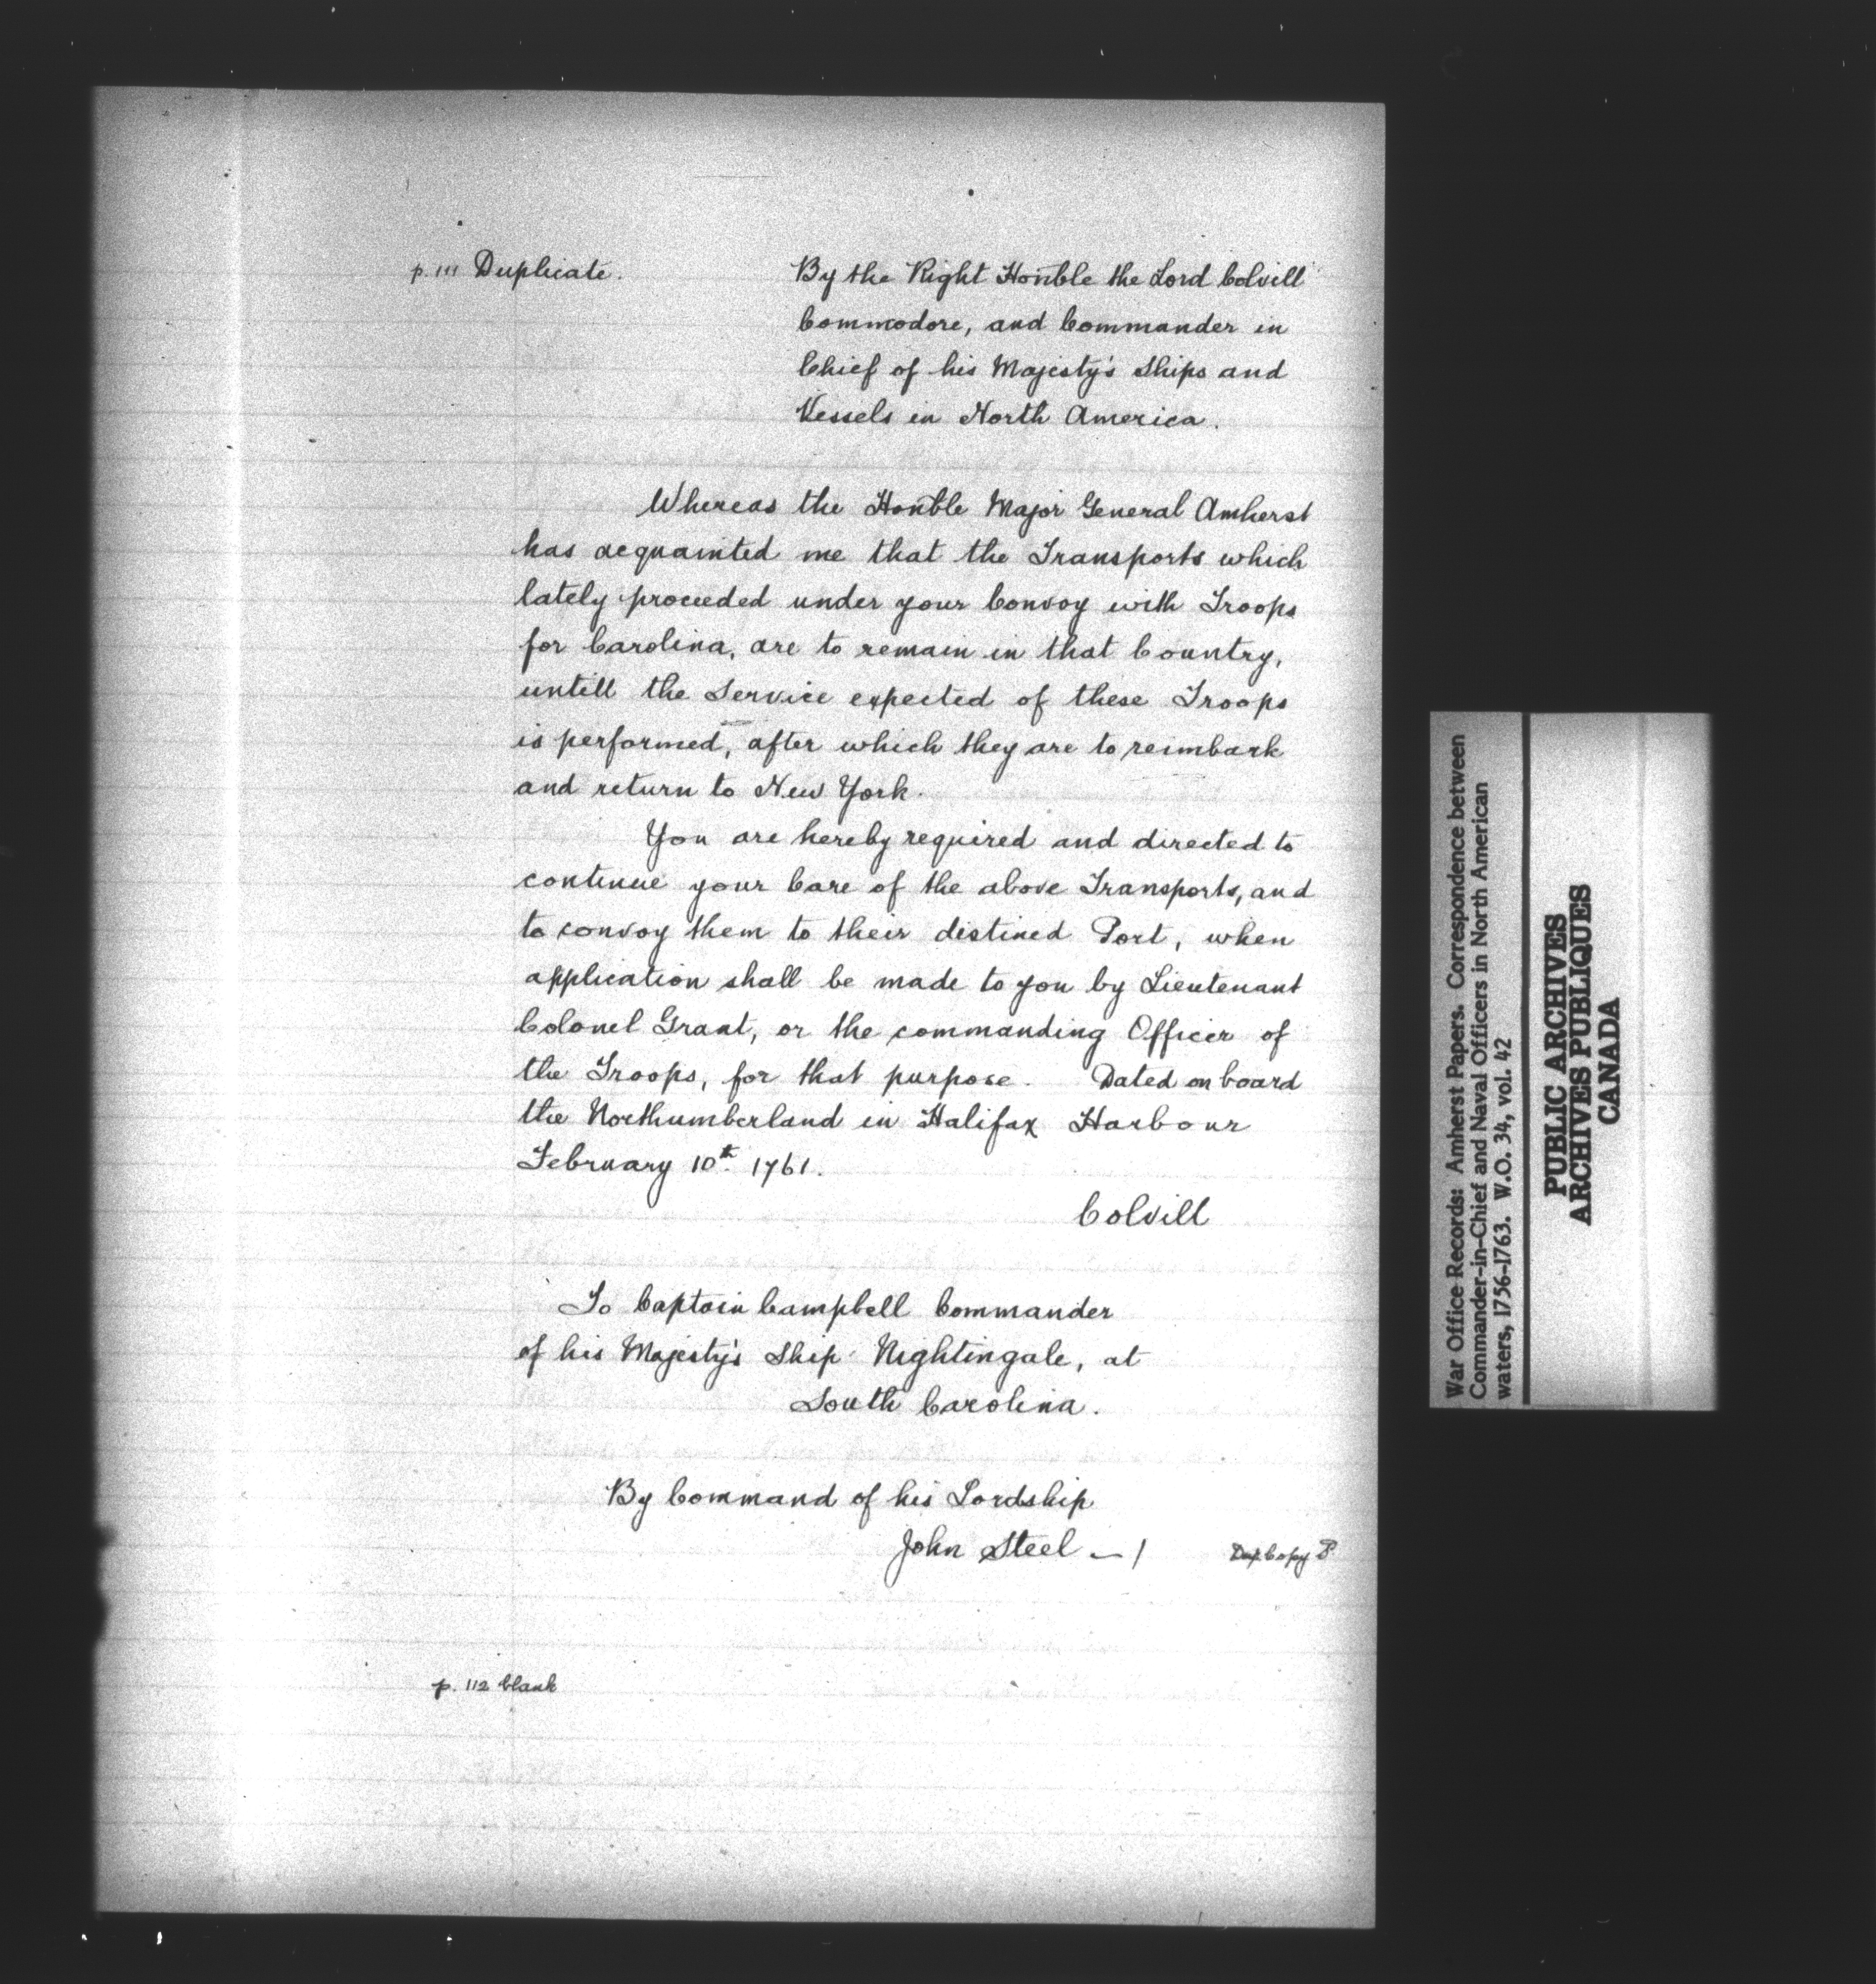 p. 111 Duplicate.
By the Right Hon̄ble the Lord Colvill
Commodore, and Commander in
Chief of his Majesty's Ships and
Vessels in North America.
Whereas the Hon̄ble Major General Amherst
has acquainted me that the Transports which
lately proceeded under your Convoy with Troops
for Carolina, are to remain in that Country,
untill the Service expected of these Troops
is performed, after which they are to reimbark
and return to New York.
You are hereby required and directed to
continue your Care of the above Transports, and
to convoy them to their distined Port, when
application shall be made to you by Lieutenant
Colonel Grant, or the commanding Officer of
the Troops, for that purpose. Dated on board
the Northumberland in Halifax Harbour
February 10th. 1761.
Colvill
To Captain Campbell Commander
of his Majesty's Ship Nightingale, at
South Carolina.
By Command of his Lordship
John Steel —/
Copy
p. 112 blank
War Office Records: Amherst Papers. Correspondence between
Commander-in-Chief and Naval Officers in North American
waters, 1756-1763. W.O. 34, vol. 42
PUBLIC ARCHIVES
ARCHIVES PUBLIQUES
CANADA